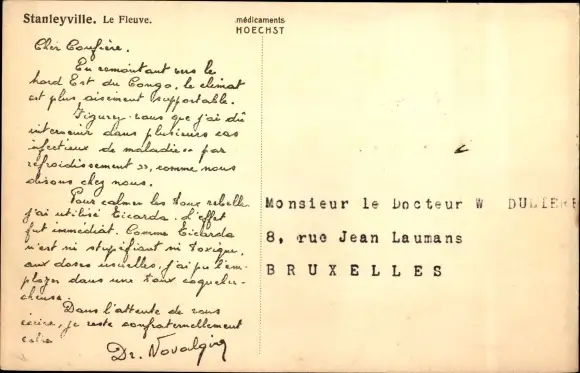 Stanleyville. Le Fleuve.
médicaments
HOECHST
Cher Confrère.
En remontant vers le
Nord Est du Congo, le climat
est plus aisément supportable.
Figurez-vous que j'ai dû
intervenir dans plusieurs cas
infectieux de maladie « par
refroidissement », comme nous
disons chez nous.
Pour calmer les toux rebelles
j'ai utilisé Ticarda. L'effet
fut immédiat. Comme Ticarda
n'est ni stupéfiant ni toxique,
aux doses usuelles, j'ai pu l'em-
ployer dans une toux coquelu-
cheuse.
Dans l'attente de vous
écrire, je reste confraternellement
vôtre
Dr. Novalgin
Monsieur le Docteur W DULIERE
8, rue Jean Laumans
BRUXELLES